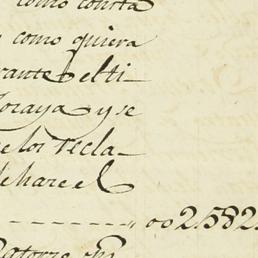 como consta
como quiera
rante el ti-
Toraya y se
e los recla-
le hare el
002.582
Catorze